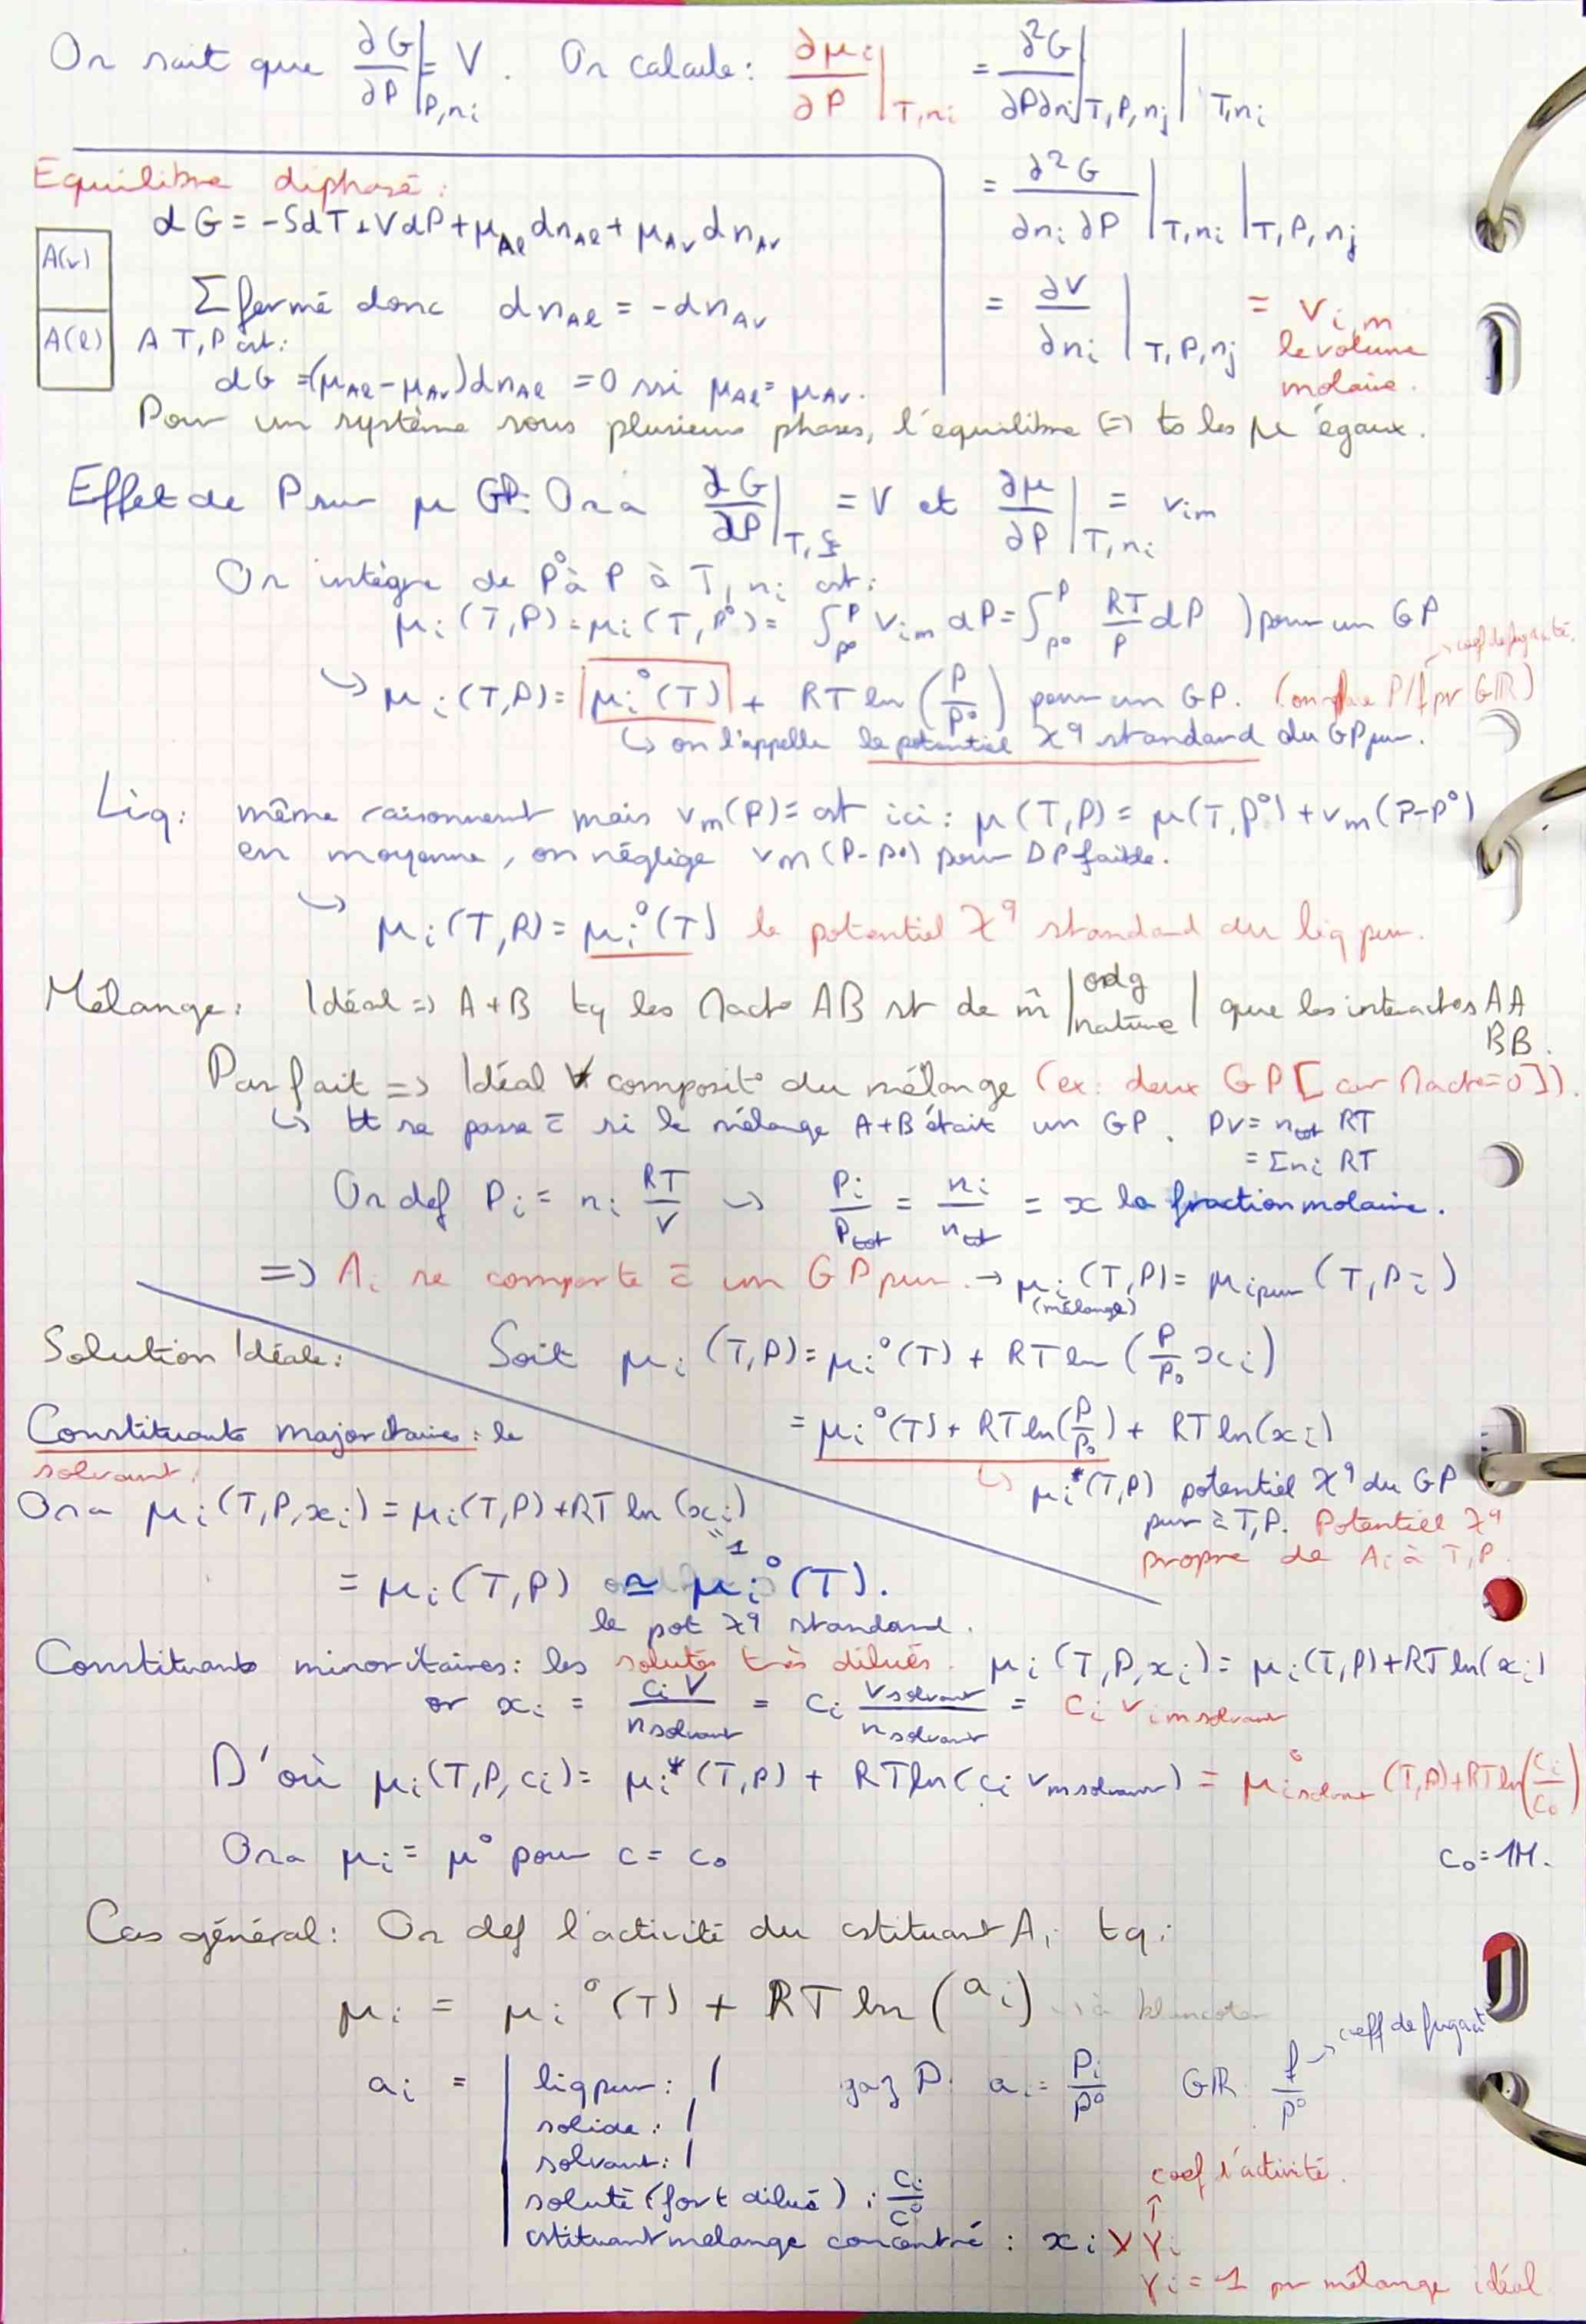 On sait que ∂G/∂P|P,ni = V. On calcule : ∂μi/∂P|T,ni = ∂²G/∂P∂ni|T,P,nj|T,ni
= ∂²G/∂ni∂P|T,ni|T,P,nj
= ∂V/∂ni|T,P,nj = vi,m
le volume
molaire.
Equilibre diphasé :
dG = -SdT + VdP + μAl dnAl + μAv dnAv
A(v)
A(l)
Σ fermé donc dnAl = -dnAv
A T, P cst :
dG = (μAl - μAv) dnAl = 0 ssi μAl = μAv.
Pour un système sous plusieurs phases, l'équilibre (=) ts les μ égaux.
Effet de P sur μ GP. On a ∂G/∂P|T,ξ = V et ∂μ/∂P|T,ni = vim
On intègre de P° à P à T, ni cst :
μi(T,P) = μi(T,P°) = ∫P°^P vim dP = ∫P°^P RT/P dP ) pour un GP
↳ μi(T,P) = μi°(T) + RT ln(P/P°) pour un GP. (P/f pr GR)
→ coef de fugacité.
↳ on l'appelle le potentiel χq standard du GP pur.
Liq : même raisonnent mais vm(P) = cst ici : μ(T,P) = μ(T,P°) + vm(P-P°)
en moyenne, on néglige vm(P-P°) pour DP faible.
↳ μi(T,P) = μi°(T) le potentiel χq standard du liq pur.
Mélange : Idéal => A+B tq les ∩act° AB st de m̂ |odg nature| que les interact°s AA
BB.
Parfait => Idéal ∀ composit° du mélange (ex : deux GP [car ∩act=0]).
↳ tt se passe c̄ si le mélange A+B était un GP. PV = ntot RT
= Σni RT
On def Pi = ni RT/V ↳ Pi/Ptot = ni/ntot = x la fraction molaire.
=> Ai se comporte c̄ un GP pur → μi(T,P) = μi pur (T, Pi)
(mélange)
Soit μi(T,P) = μi°(T) + RT ln(P/P0 xi)
= μi°(T) + RT ln(P/P0) + RT ln(xi)
↳ μi*(T,P) potentiel χq du GP
pur à T,P. Potentiel χq
propre de Ai à T,P.
Solution Idéale :
Constituants majoritaires : le
solvant.
On a μi(T,P,xi) = μi(T,P) + RT ln(xi)
" 1
= μi(T,P) ≃ μi°(T).
le pot χq standard.
Constituants minoritaires : les solutés très dilués. μi(T,P,xi) = μi(T,P) + RT ln(xi)
or xi = ciV/nsolvant = ci Vsolvant/nsolvant = ci vim solvant
D'où μi(T,P,ci) = μi*(T,P) + RT ln(ci vm solvant) = μ°i solvant (T,P) + RT ln(ci/c0)
On a μi = μ° pour c = c0
c0 = 1M.
Cas général : On def l'activité du cstituant Ai tq :
μi = μi°(T) + RT ln(ai)
ai = | liq pur : 1
gaz P. ai = Pi/P° GR f/P° → coeff de fugacit
solide : 1
solvant : 1
soluté (fort dilué) : ci/c°
cstituant mélange concentré : xi × γi
coef d'activité.
↑
γi = 1 pr mélange idéal